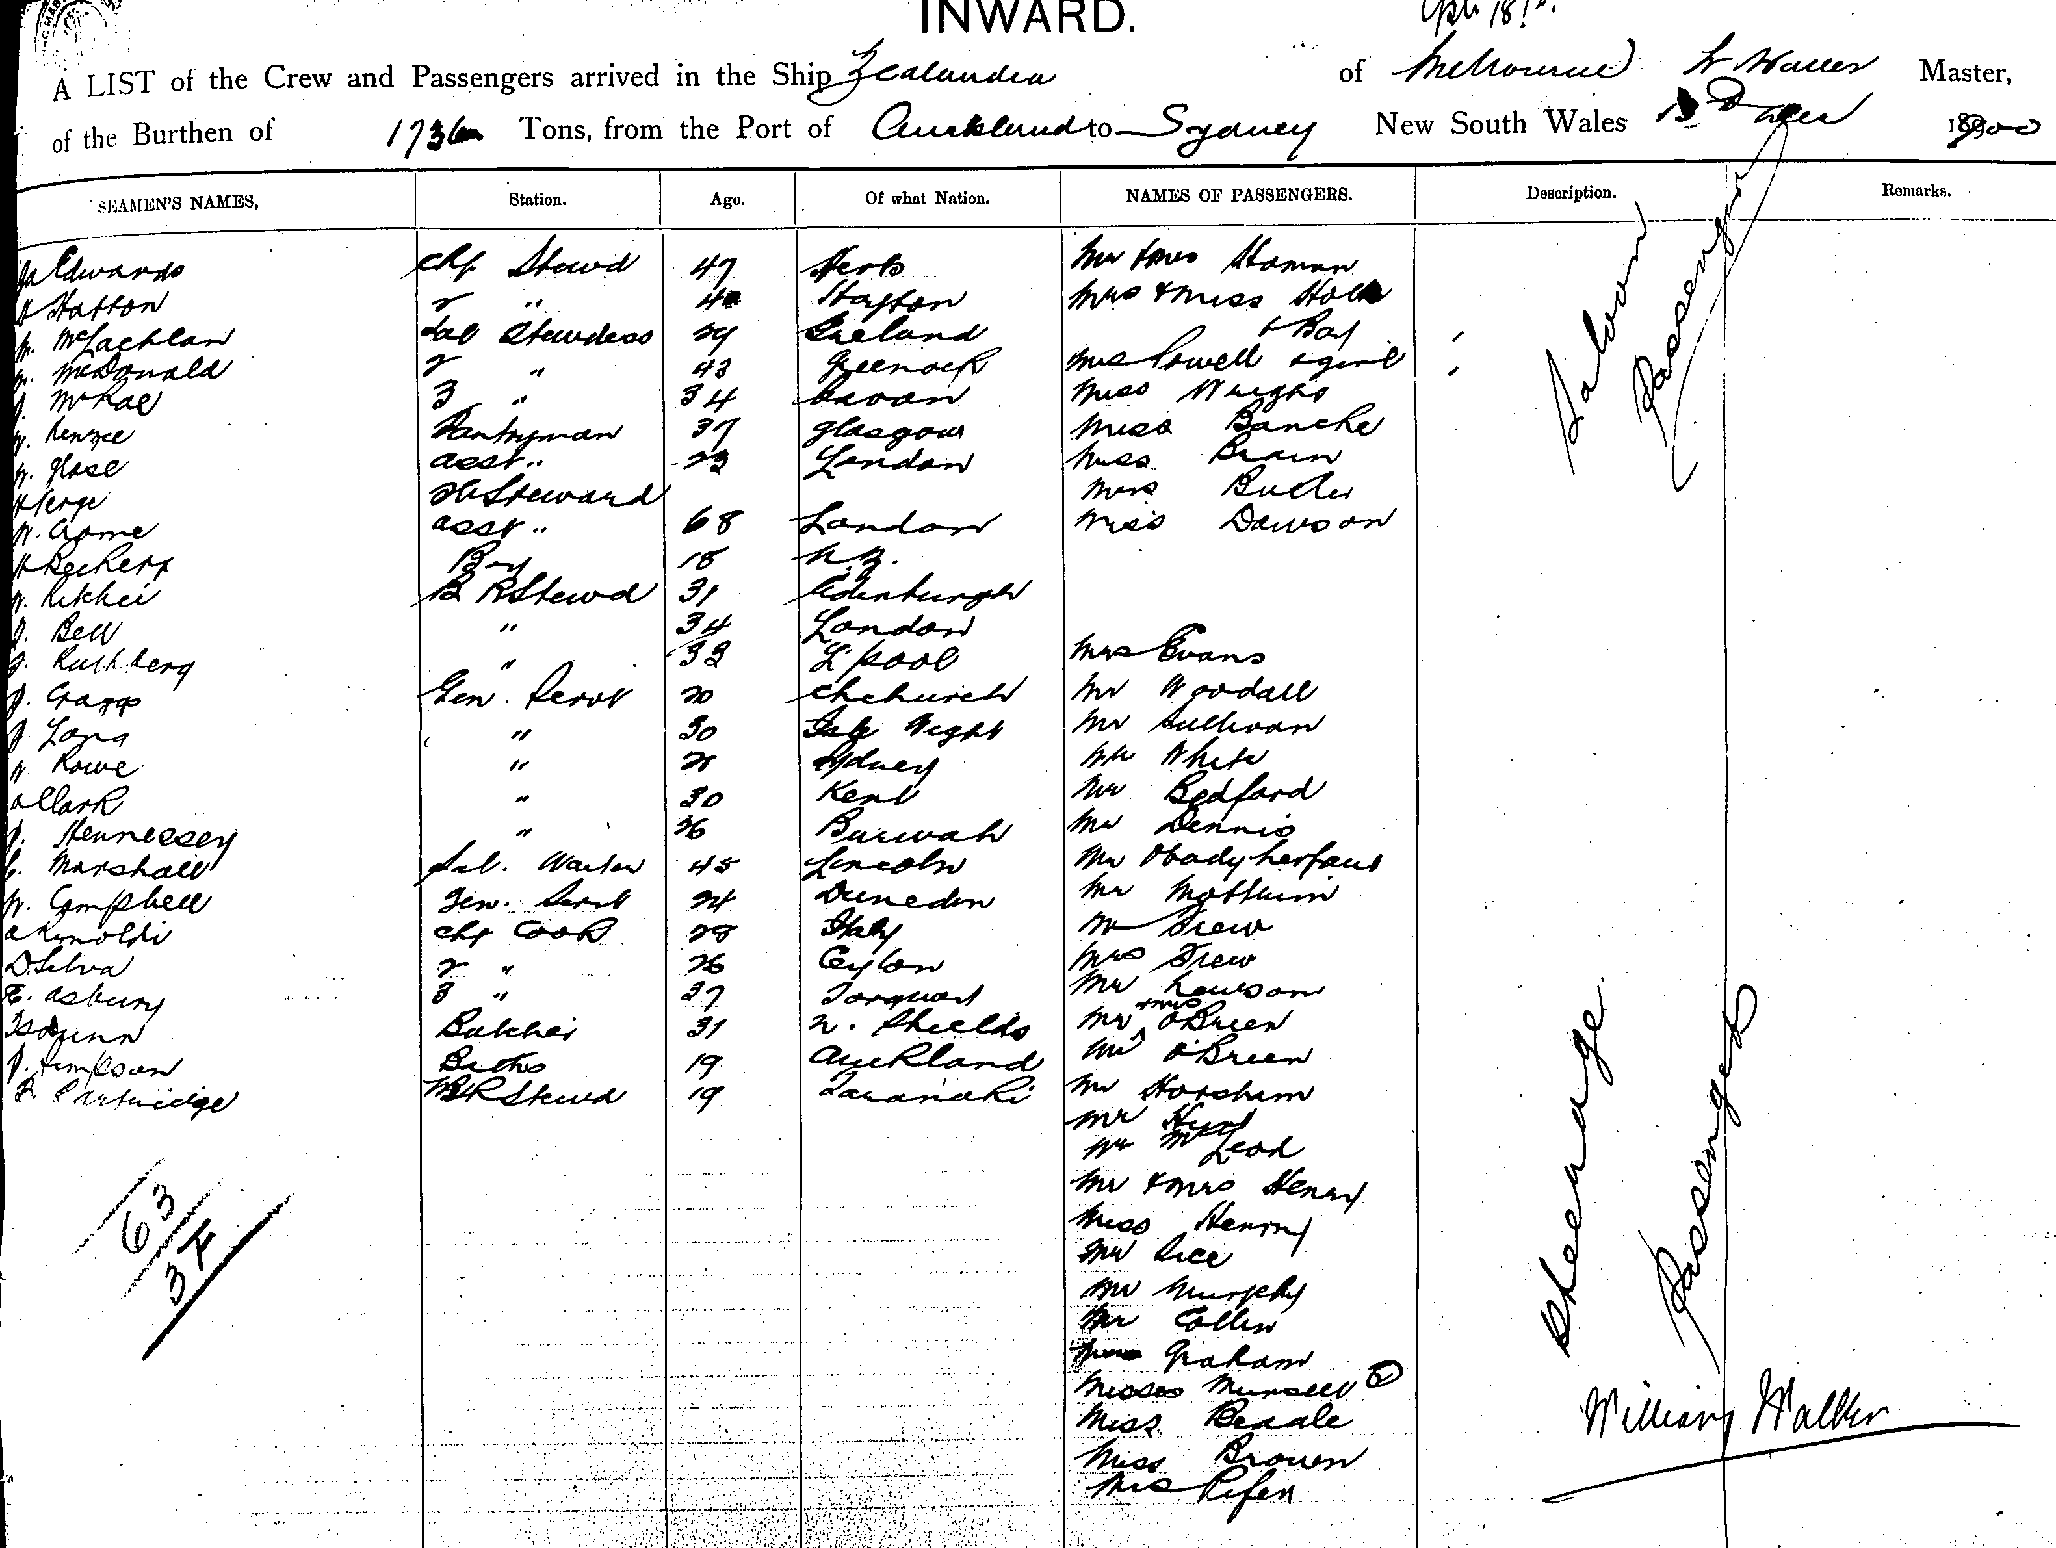 INWARD.
A LIST of the Crew and Passengers arrived in the Ship Zealandia of Melbourne W Waller Master,
of the Burthen of 1736 Tons, from the Port of Auckland to Sydney New South Wales 13 Dcr 1900
SEAMEN'S NAMES, Station. Age. Of what Nation. NAMES OF PASSENGERS. Description. Remarks.
Edwards Chf Stewd 47 Herts Mr & Mrs Homan
Hatton 2 " Mrs & Miss
Saloon Passengers
McLachlan Stewdess 29 Ireland & Boy
McDonald 2 " 43 Greenock Mrs Powell & girl
McRae 3 " 34 Cavan Miss Wright
Kenzie Pantryman 37 Glasgow Miss Banche
asst " 23 London Miss Brain
Steward Mrs Butler
asst " 68 London Miss Dawson
Boy 18 N.Z.
W. Ritchie B R Stewd 31 Edinburgh
J. Bell " 34 London
" 33 L'pool Mrs Evans
J. Cragg Gen. Servt 20 Chchurch Mr Woodall
J. Long " 30 Isle Wight Mr Sullivan
W Rowe " 21 Sydney Mr White
A Clark " 30 Kent Mr Bedford
J. Hennessey " 26 Mr Dennis
C. Marshall Sal. Waiter 45 Lincoln Mr
W. Campbell Gen. Servt 24 Dunedin Mr
A Rinoldi Chf Cook 28 Italy Mr Trew
D Silva 2 " 26 Ceylon Mrs Trew
E. Asbury 3 " 37 Torquay Mr Lawson
Dunn Butcher 31 N. Shields Mr & Mrs O'Brien
J. Simpson 19 Auckland Mr O'Brien
Partridge Stewd 19 Taranaki Mr Horsham
Mr Hunt
Mr McLeod
Mr & Mrs Henry
Miss Henry
Mr Rice
Mr Murphy
Mr Collin
Graham
Misses Mursell 2
Miss Beadle
Miss Brown
Mrs
Steerage Passengers
63
34
William Waller